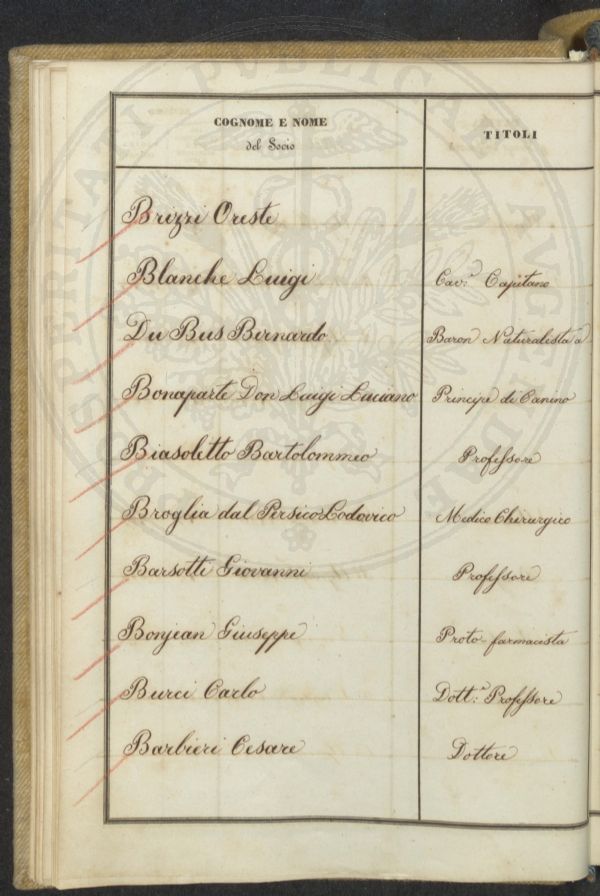 COGNOME E NOME
del Socio
TITOLI
Brizzi Oreste
Blanche Luigi Cav.e Capitano
Du Bus Bernardo Baron Naturalista a
Bonaparte Don Luigi Luciano Principe di Canino
Biasoletto Bartolommeo Professore
Broglia dal Persico Lodovico Medico Chirurgico
Barsotti Giovanni Professore
Bonjean Giuseppe Proto-farmacista
Burci Carlo Dott.e Professore
Barbieri Cesare Dottore
PROSPERITATI PVBLICAE AVGENDAE